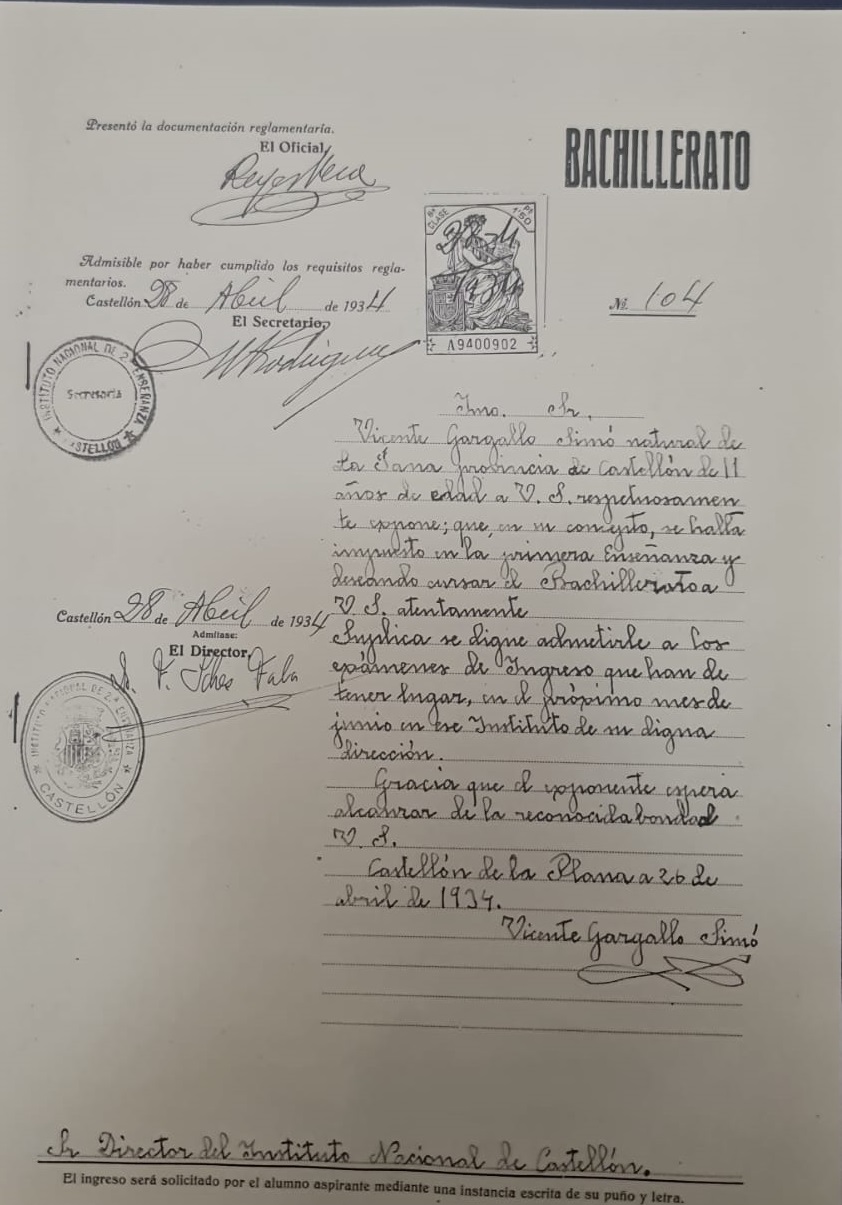 Presentó la documentación reglamentaria.
El Oficial,
BACHILLERATO
8ª CLASE
1'50 PS
28-4
1934
A9400902
Admisible por haber cumplido los requisitos regla-
mentarios.
Castellón 28 de Abril de 1934
El Secretario,
Rodríguez
INSTITUTO NACIONAL DE 2ª ENSEÑANZA
Secretaría
★ CASTELLÓN ★
Nº 104
Ilmo. Sr.
Vicente Gargallo Simó natural de
La Jana provincia de Castellón de 11
años de edad a V. S. respetuosamen
te expone; que, en su concepto, se halla
impuesto en la primera Enseñanza y
deseando cursar el Bachillerato a
V. S. atentamente
Suplica se digne admetirle a los
exámenes de Ingreso que han de
tener lugar, en el próximo mes de
junio en ese Instituto de su digna
dirección.
Gracia que el exponente espera
alcanzar de la reconocida bondad
V. S.
Castellón de la Plana a 26 de
abril de 1934.
Vicente Gargallo Simó
Castellón 28 de Abril de 1934
Admítase:
El Director,
INSTITUTO NACIONAL DE 2ª ENSEÑANZA
★ CASTELLÓN ★
Sr Director del Instituto Nacional de Castellón.
El ingreso será solicitado por el alumno aspirante mediante una instancia escrita de su puño y letra.